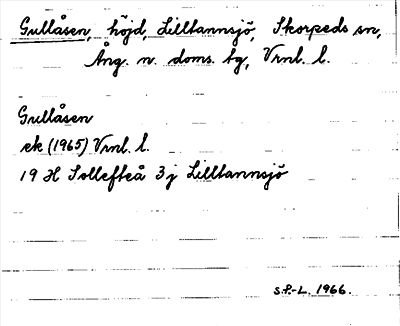 Gullåsen, höjd, Lilltannsjö, Skorpeds sn,
Ång. n. doms. tg, Vrnl. l.
Gullåsen
ek (1965) Vrnl. l.
19 H Sollefteå 3 j Lilltannsjö
S.P.-L. 1966.